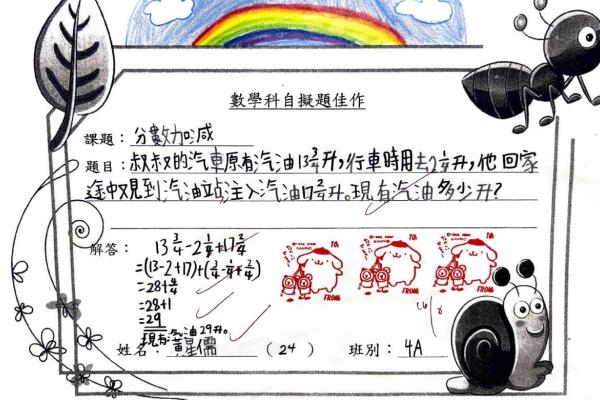 數學科自擬題佳作
課題：分數加減
題目：叔叔的汽車原有汽油13 3/4升，行車時用去2 1/4升，他回家
途中又見到汽油站注入汽油17 2/4升。現有汽油多少升？
解答： 13 3/4 - 2 1/4 + 17 2/4
=(13-2+17)+(3/4-1/4+2/4)
=28+4/4
=28+1
=29
現有汽油29升。
TO:
FROM
TO:
FROM
TO:
FROM
姓名：黃星儒 （24） 班別：4A